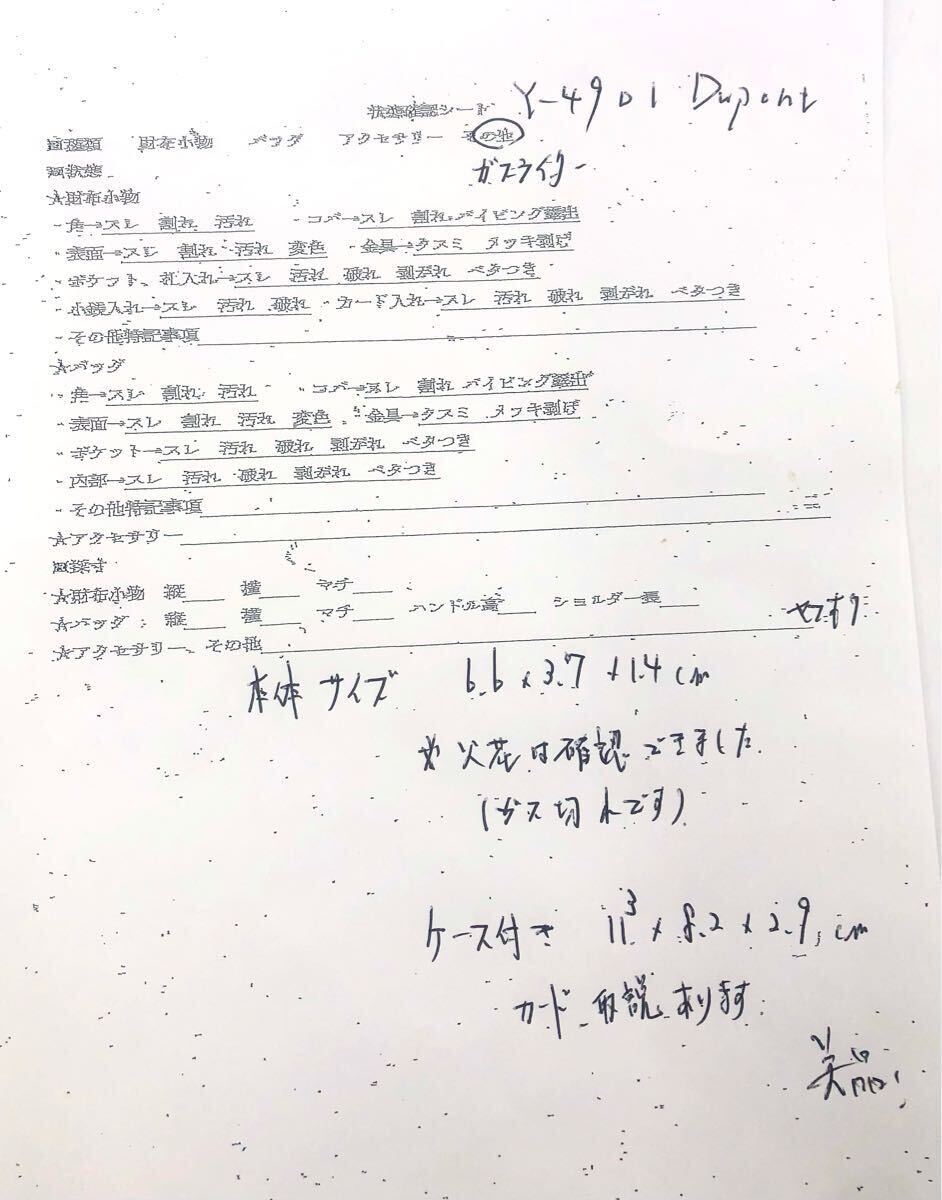 状態確認シート Y-4901 Dupont
□種類 財布小物 バッグ アクセサリー その他
ガスライター
□状態
☆財布小物
・角→スレ 割れ 汚れ ・コバ→スレ 割れ パイピング露出
・表面→スレ 割れ 汚れ 変色 ・金具→クスミ メッキ剥げ
・ポケット、札入れ→スレ 汚れ 破れ 剥がれ ベタつき
・小銭入れ→スレ 汚れ 破れ ・カード入れ→スレ 汚れ 破れ 剥がれ ベタつき
・その他特記事項
☆バッグ
・角→スレ 割れ 汚れ ・コバ→スレ 割れ パイピング露出
・表面→スレ 割れ 汚れ 変色 ・金具→クスミ メッキ剥げ
・ポケット→スレ 汚れ 破れ 剥がれ ベタつき
・内部→スレ 汚れ 破れ 剥がれ ベタつき
・その他特記事項
☆アクセサリー
□採寸
☆財布小物 縦 横 マチ
☆バッグ: 縦 横 マチ ハンドル高 ショルダー長
☆アクセサリー、その他
本体サイズ 6.6×3.7×1.4cm
※火花は確認できました
(ガス切れです)
ケース付き 11.3×8.2×2.9cm
カード、取説あります
美品